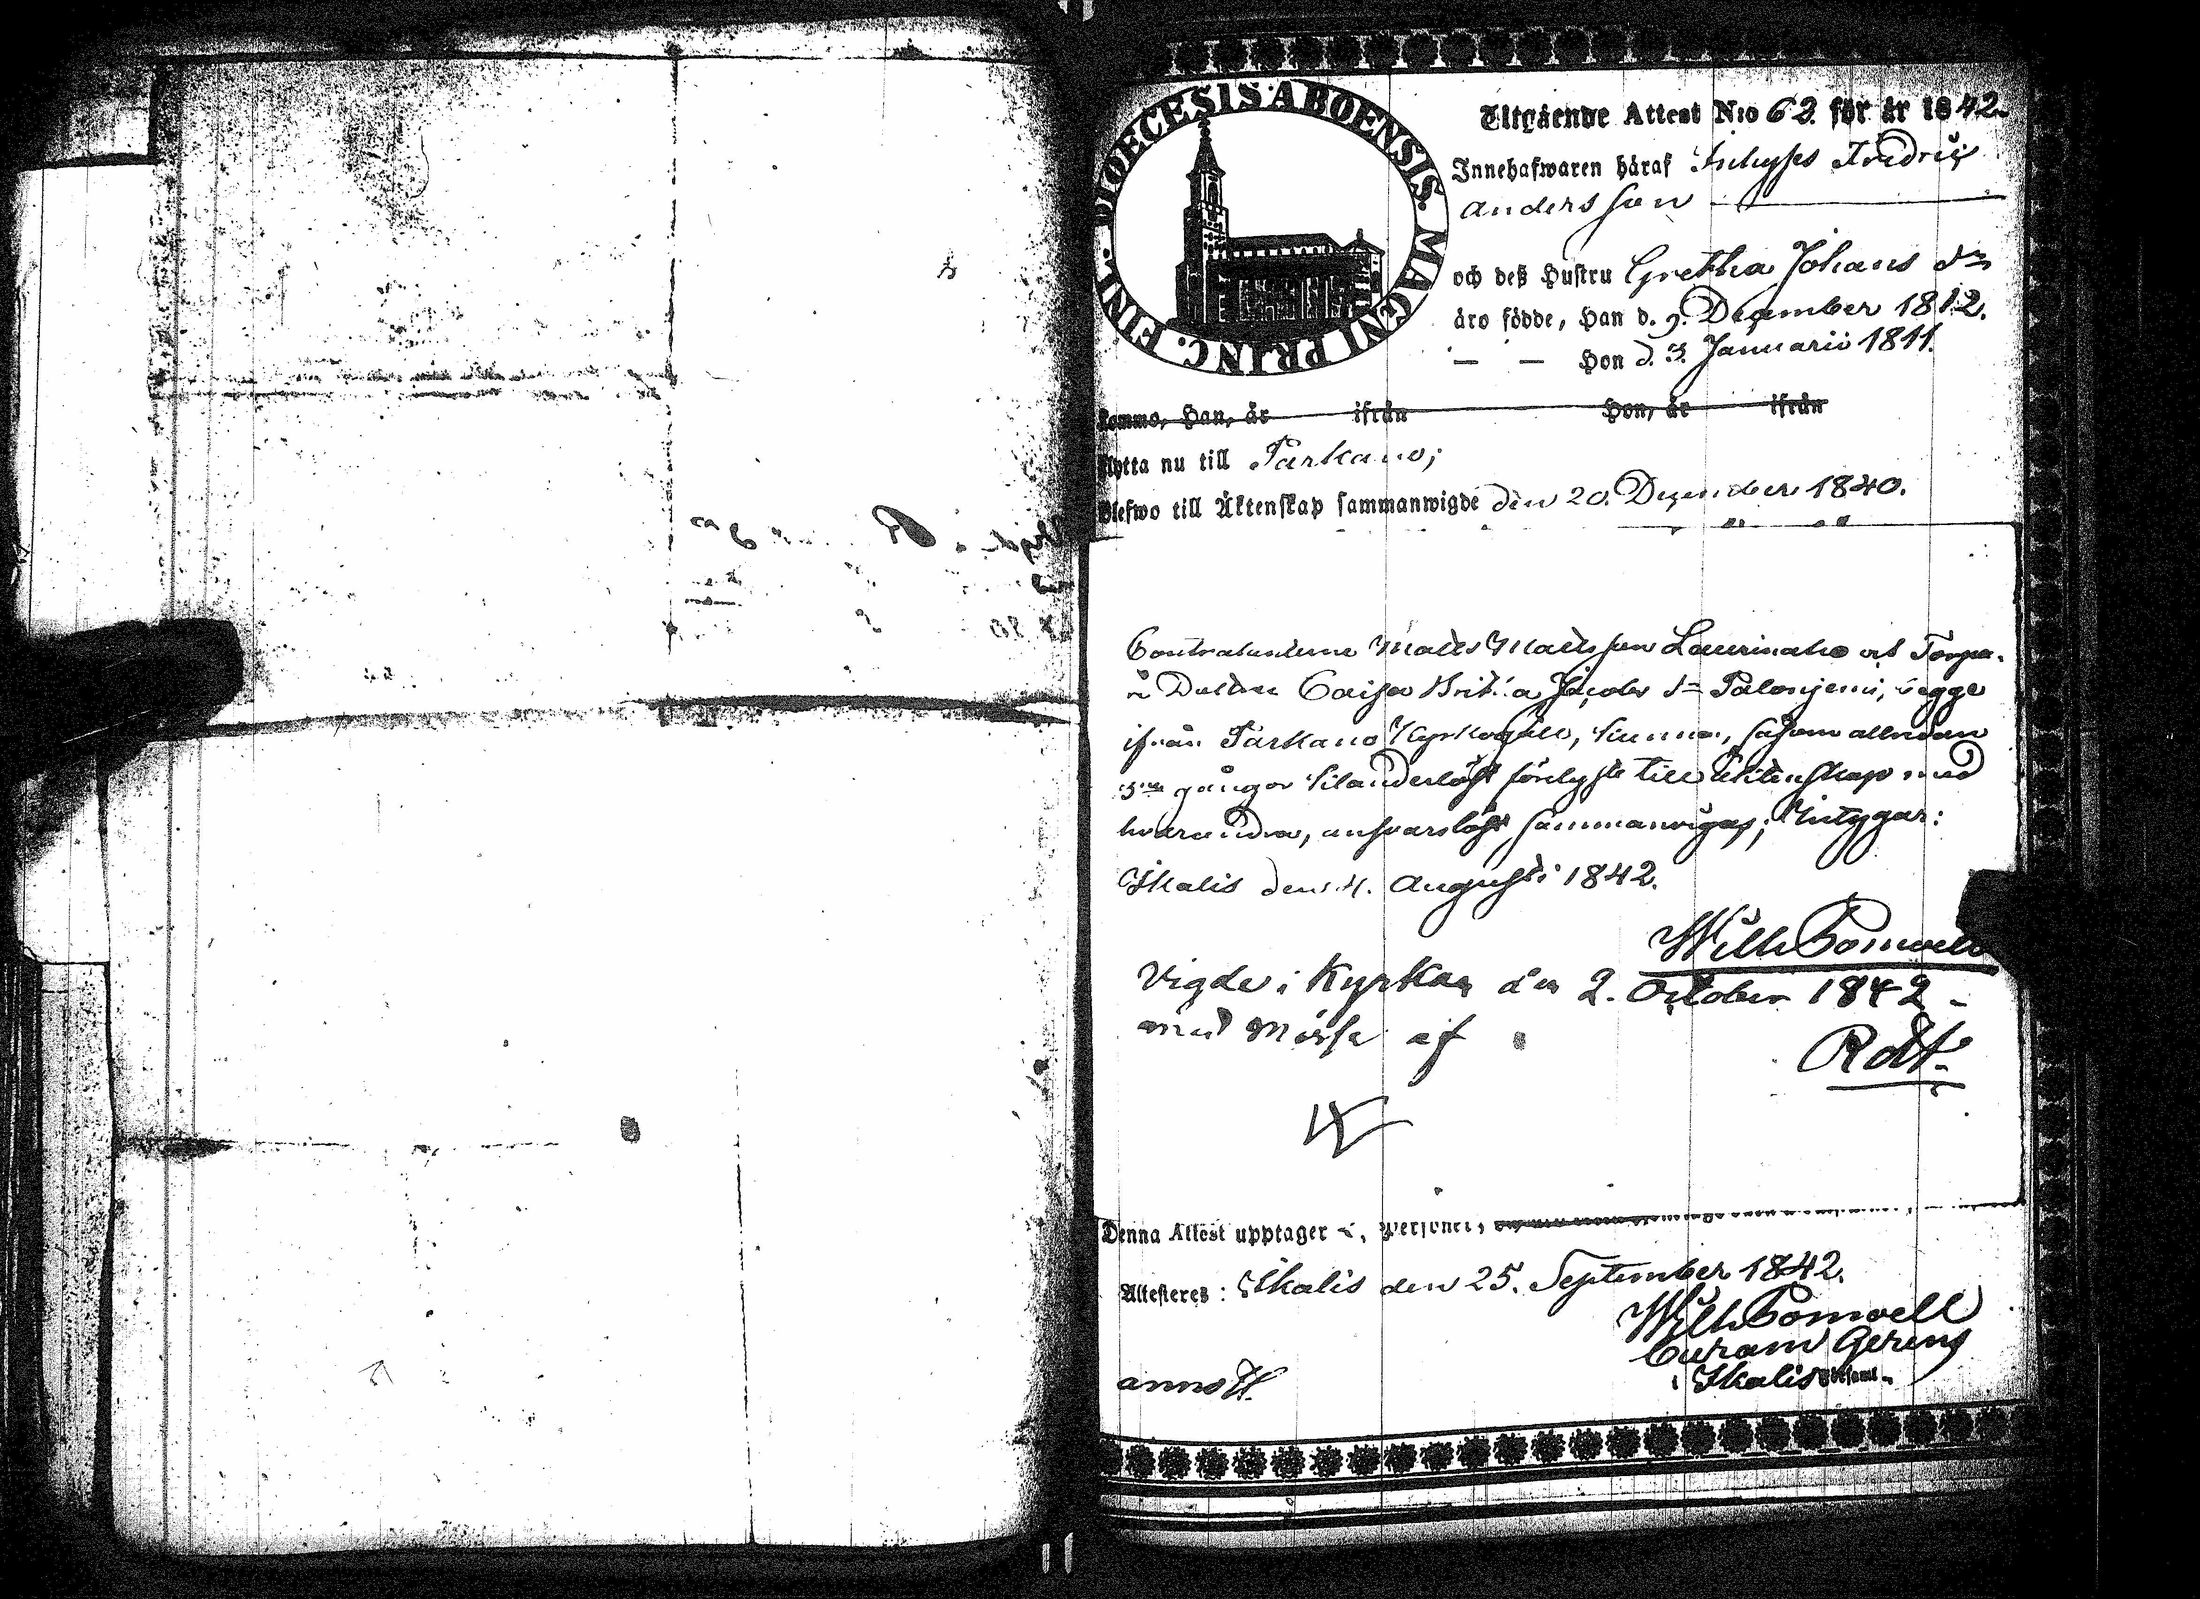 DIOECESIS ABOENSIS. MAGNI PRINC. FINL.
Utgående Attest N:o 62. för år 1842.
Innehafwaren häraf Inhyses Fredric
Andersson
och deß Hustru Gretha Johans dr
äro födde, Han d. 9. December 1812.
— — Hon d. 3. Januarii 1811.
komma, Han, är ifrån Hon, är ifrån
flytta nu till Parkano;
Blefwo till Äktenskap sammanwigde den 20. December 1840.
Contrahenterne Matts Mattsson Laurinaho och Torpa-
re Dottren Caisa Brita Jacobs dr Palonjemi, begge
ifrån Parkano Kyrkogäll, kunna, såsom allredan
3ne gångor klanderlöst förelyste till äktenskap med
hvarandra, ansvarslöst sammanvigas; Intygar:
Ikalis den 4. Augusti 1842.
Wilh Ponvell
Vigde i Kyrkan den 2. October 1842 -
med Mössa af
Rdt.
Denna Attest upptager 2, Personer,
Attesteres: Ikalis den 25. September 1842.
Wilh Ponvell
Curam Gerens
i Ikalis
anno